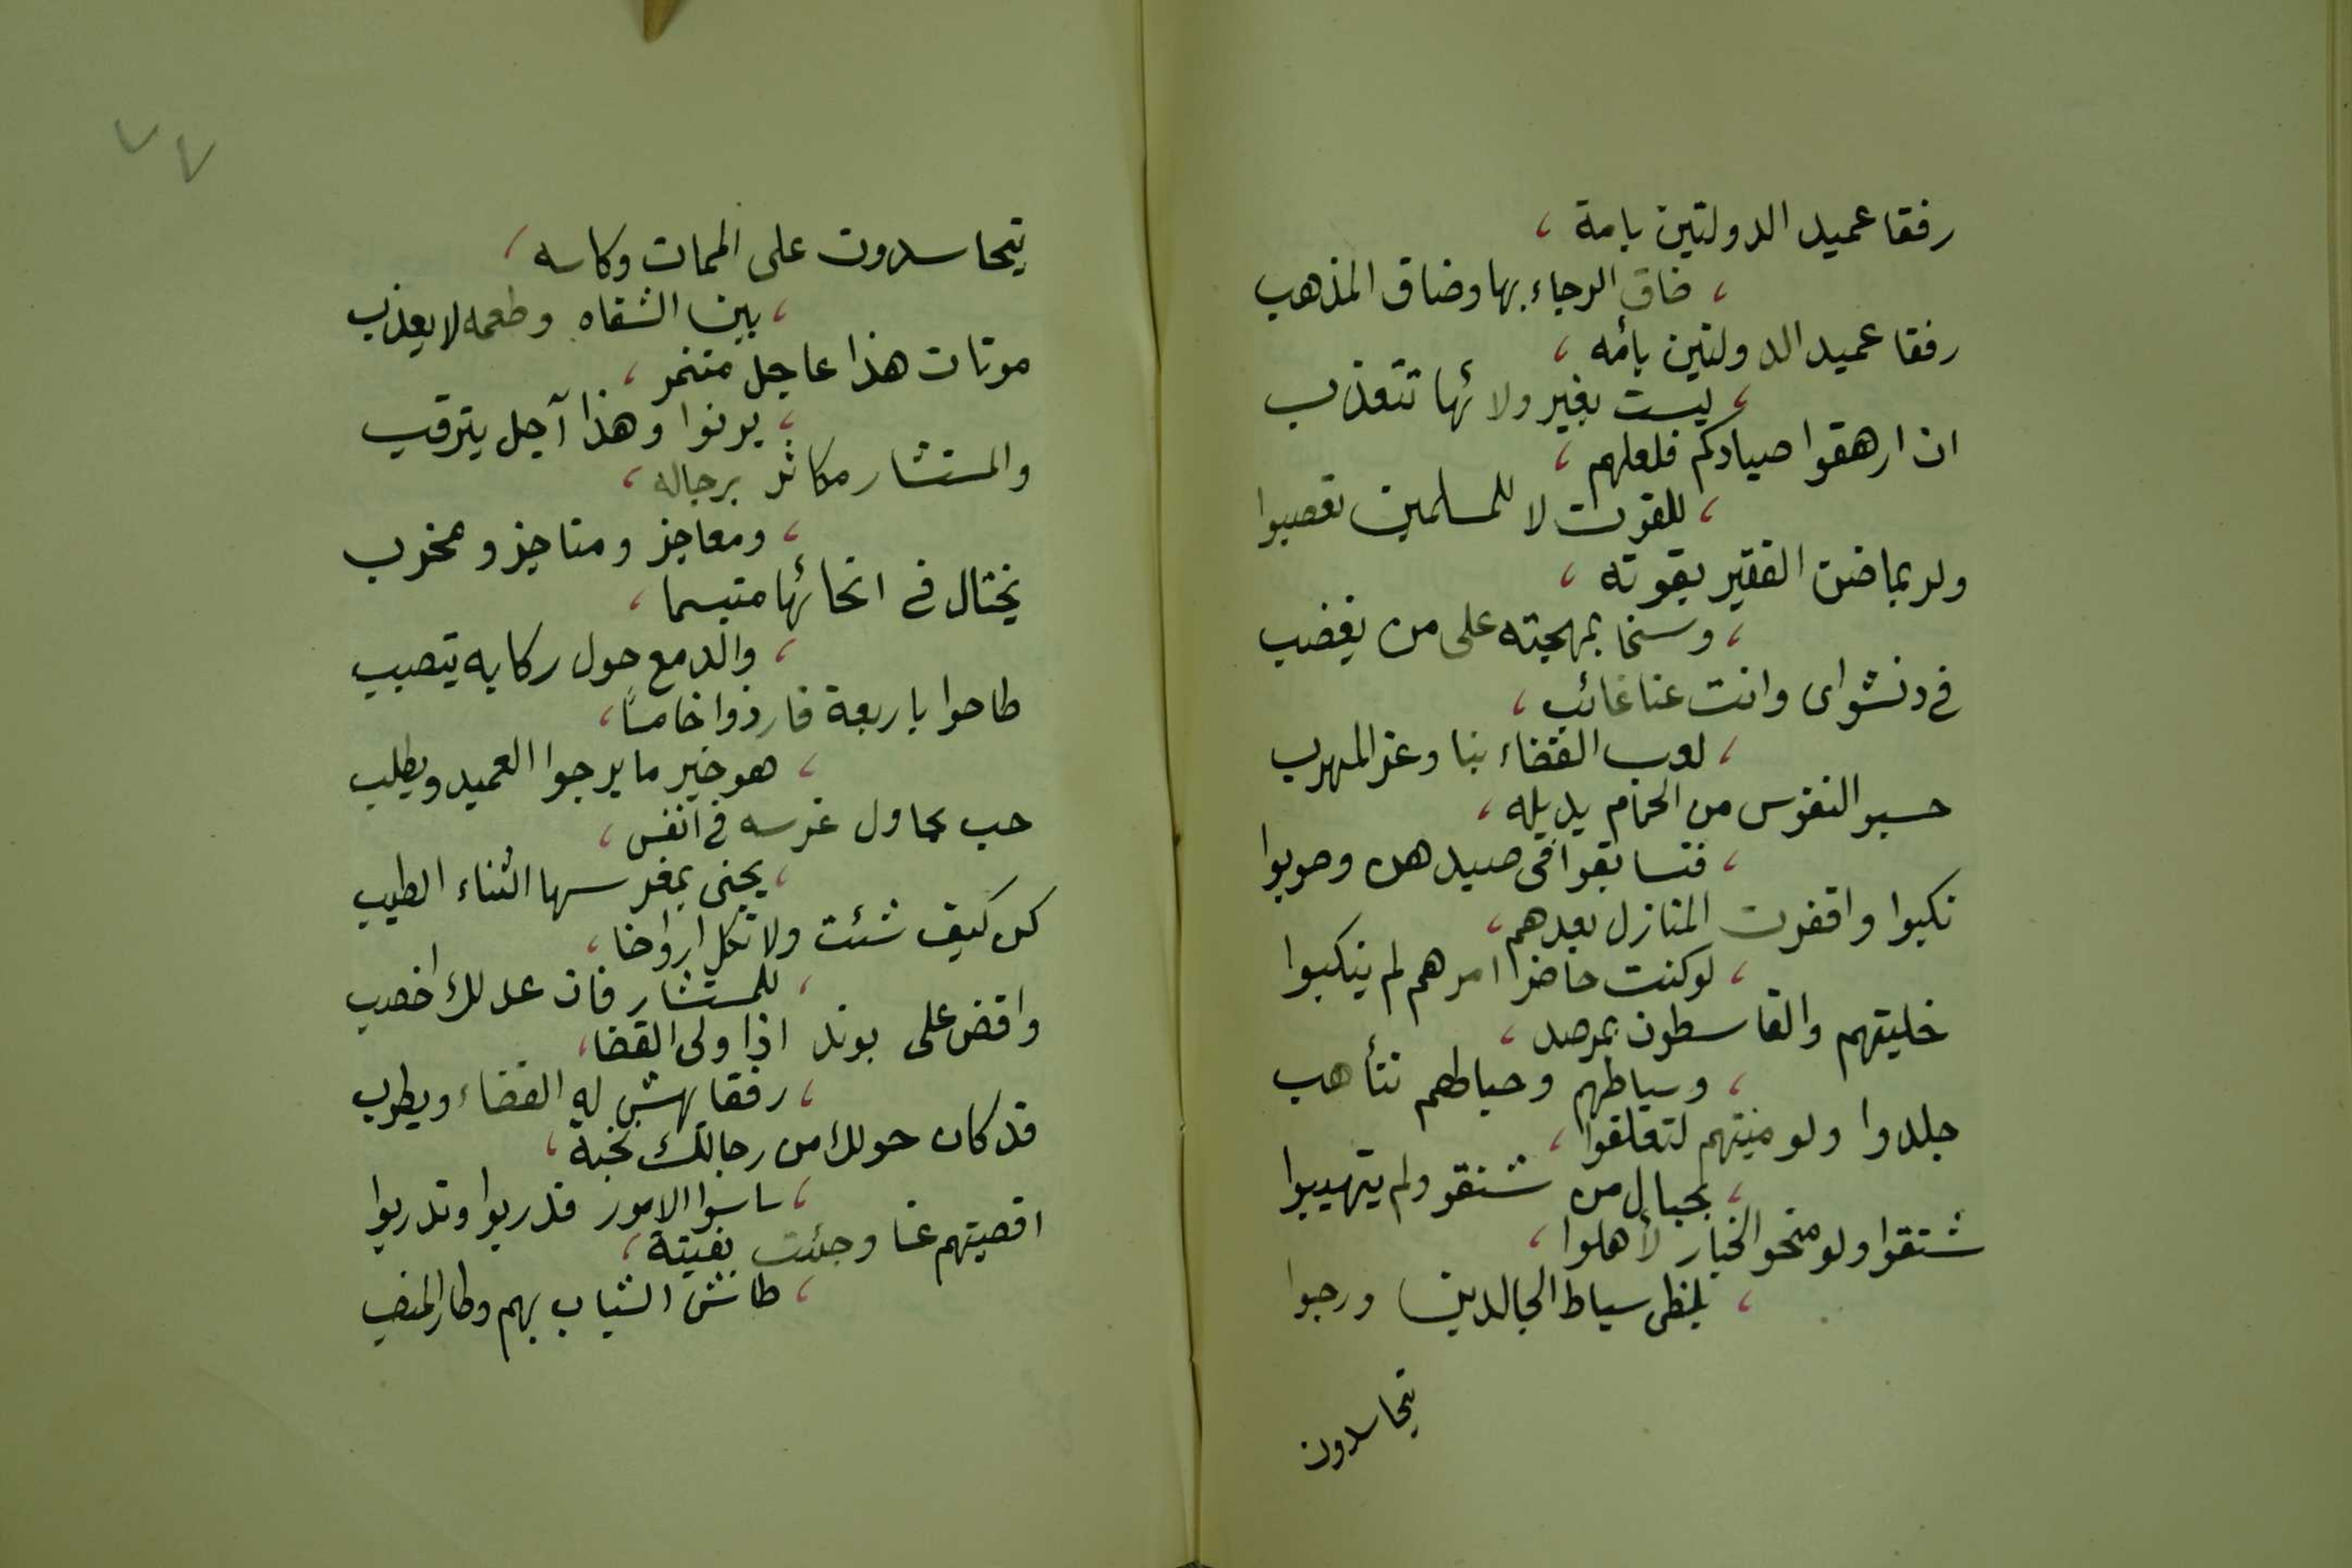 رفقا عميد الدولتين بامة ،
، ضاق الرجاء بها وضاق المذهب
رفقا عميد الدولتين بأمه ،
، ليست بغير ولائها تتعذب
ان ارهقوا صيادكم فلعلهم ،
، للقوت لا للمسلمين تعصبوا
ولربما ضن الفقير بقوته ،
، وسخا بمهجته على من يغضب
فى دنشواى وانت عنا غائب ،
، لعب القضاء بنا وعز المهرب
حسبو النفوس من الحمام بديله ،
، فتسابقوا فى صيدهن وصوبوا
نكبوا واقفرت المنازل بعدهم ،
، لو كنت حاضر امرهم لم ينكبوا
خليتهم والقاسطون بمرصد ،
، وسياطهم وحبالهم تتأهب
جلدوا ولو منيتهم لتعلقوا ،
، بحبال من شنقو ولم يتهيبوا
شنقوا ولو منحو الخيار لأهلوا ،
، بلظى سياط الجالدين ورحبوا
تيحاسدون
٧٧
يتحاسدون على الممات وكاسه ،
، بين الشفاه وطعمه لا يعذب
موتات هذا عاجل متنمر ،
، يرنوا وهذا آجل يترقب
والمستشار مكاثر برجاله ،
، ومعاجز ومناجز ومخرب
يختال فى انحائها متبسما ،
، والدمع حول ركابه يتصبب
طاحوا باربعة فاردوا خامسًا ،
، هو خير ما يرجوا العميد ويطلب
حب يحاول غرسه فى انفس ،
، يجنى بمغرسها الثناء الطيب
كن كيف شئت ولا تكل ارواحنا ،
، للمستشار فان عدلك اخصب
واقض على بوند اذا ولى القضا ،
، رفقا يهش له القضاء ويطرب
قد كان حولك من رجالك نخبة ،
، ساسوا الامور فدربوا وتدربوا
اقصيتهم عنا وجئت بفيتة ،
، طاش الشباب بهم وطار المنصب